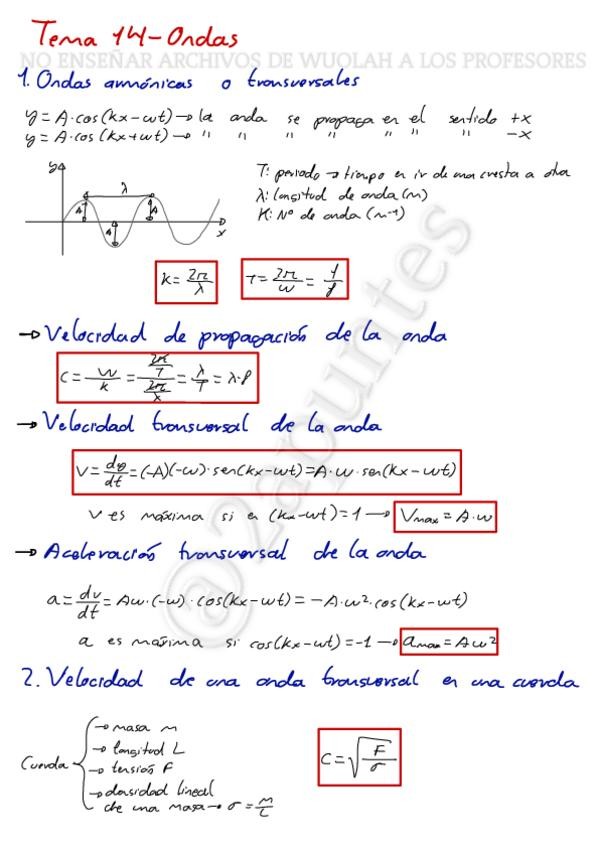 Tema 14-Ondas
NO ENSEÑAR ARCHIVOS DE WUOLAH A LOS PROFESORES
1. Ondas armónicas o transversales
y = A·cos(kx-wt) → la onda se propaga en el sentido +x
y = A·cos(kx+wt) → " " " " " " " -x
y
λ
A A A
x
T: periodo → tiempo en ir de una cresta a otra
λ: longitud de onda (m)
K: Nº de onda (m⁻¹)
k = 2π/λ
T = 2π/w = 1/f
→ Velocidad de propagación de la onda
C = w/k = (2π/T)/(2π/λ) = λ/T = λ·f
→ Velocidad transversal de la onda
V = dy/dt = (-A)(-w)·sen(kx-wt) = A·w·sen(kx-wt)
V es máxima si en (kx-wt) = 1 → Vmax = A·w
→ Aceleración transversal de la onda
a = dv/dt = Aw·(-w)·cos(kx-wt) = -A·w²·cos(kx-wt)
a es máxima si cos(kx-wt) = -1 → amax = Aw²
2. Velocidad de una onda transversal en una cuerda
Cuerda
→ masa m
→ longitud L
→ tensión F
→ densidad lineal
de una masa → σ = m/L
C = √(F/σ)
@2apuntes